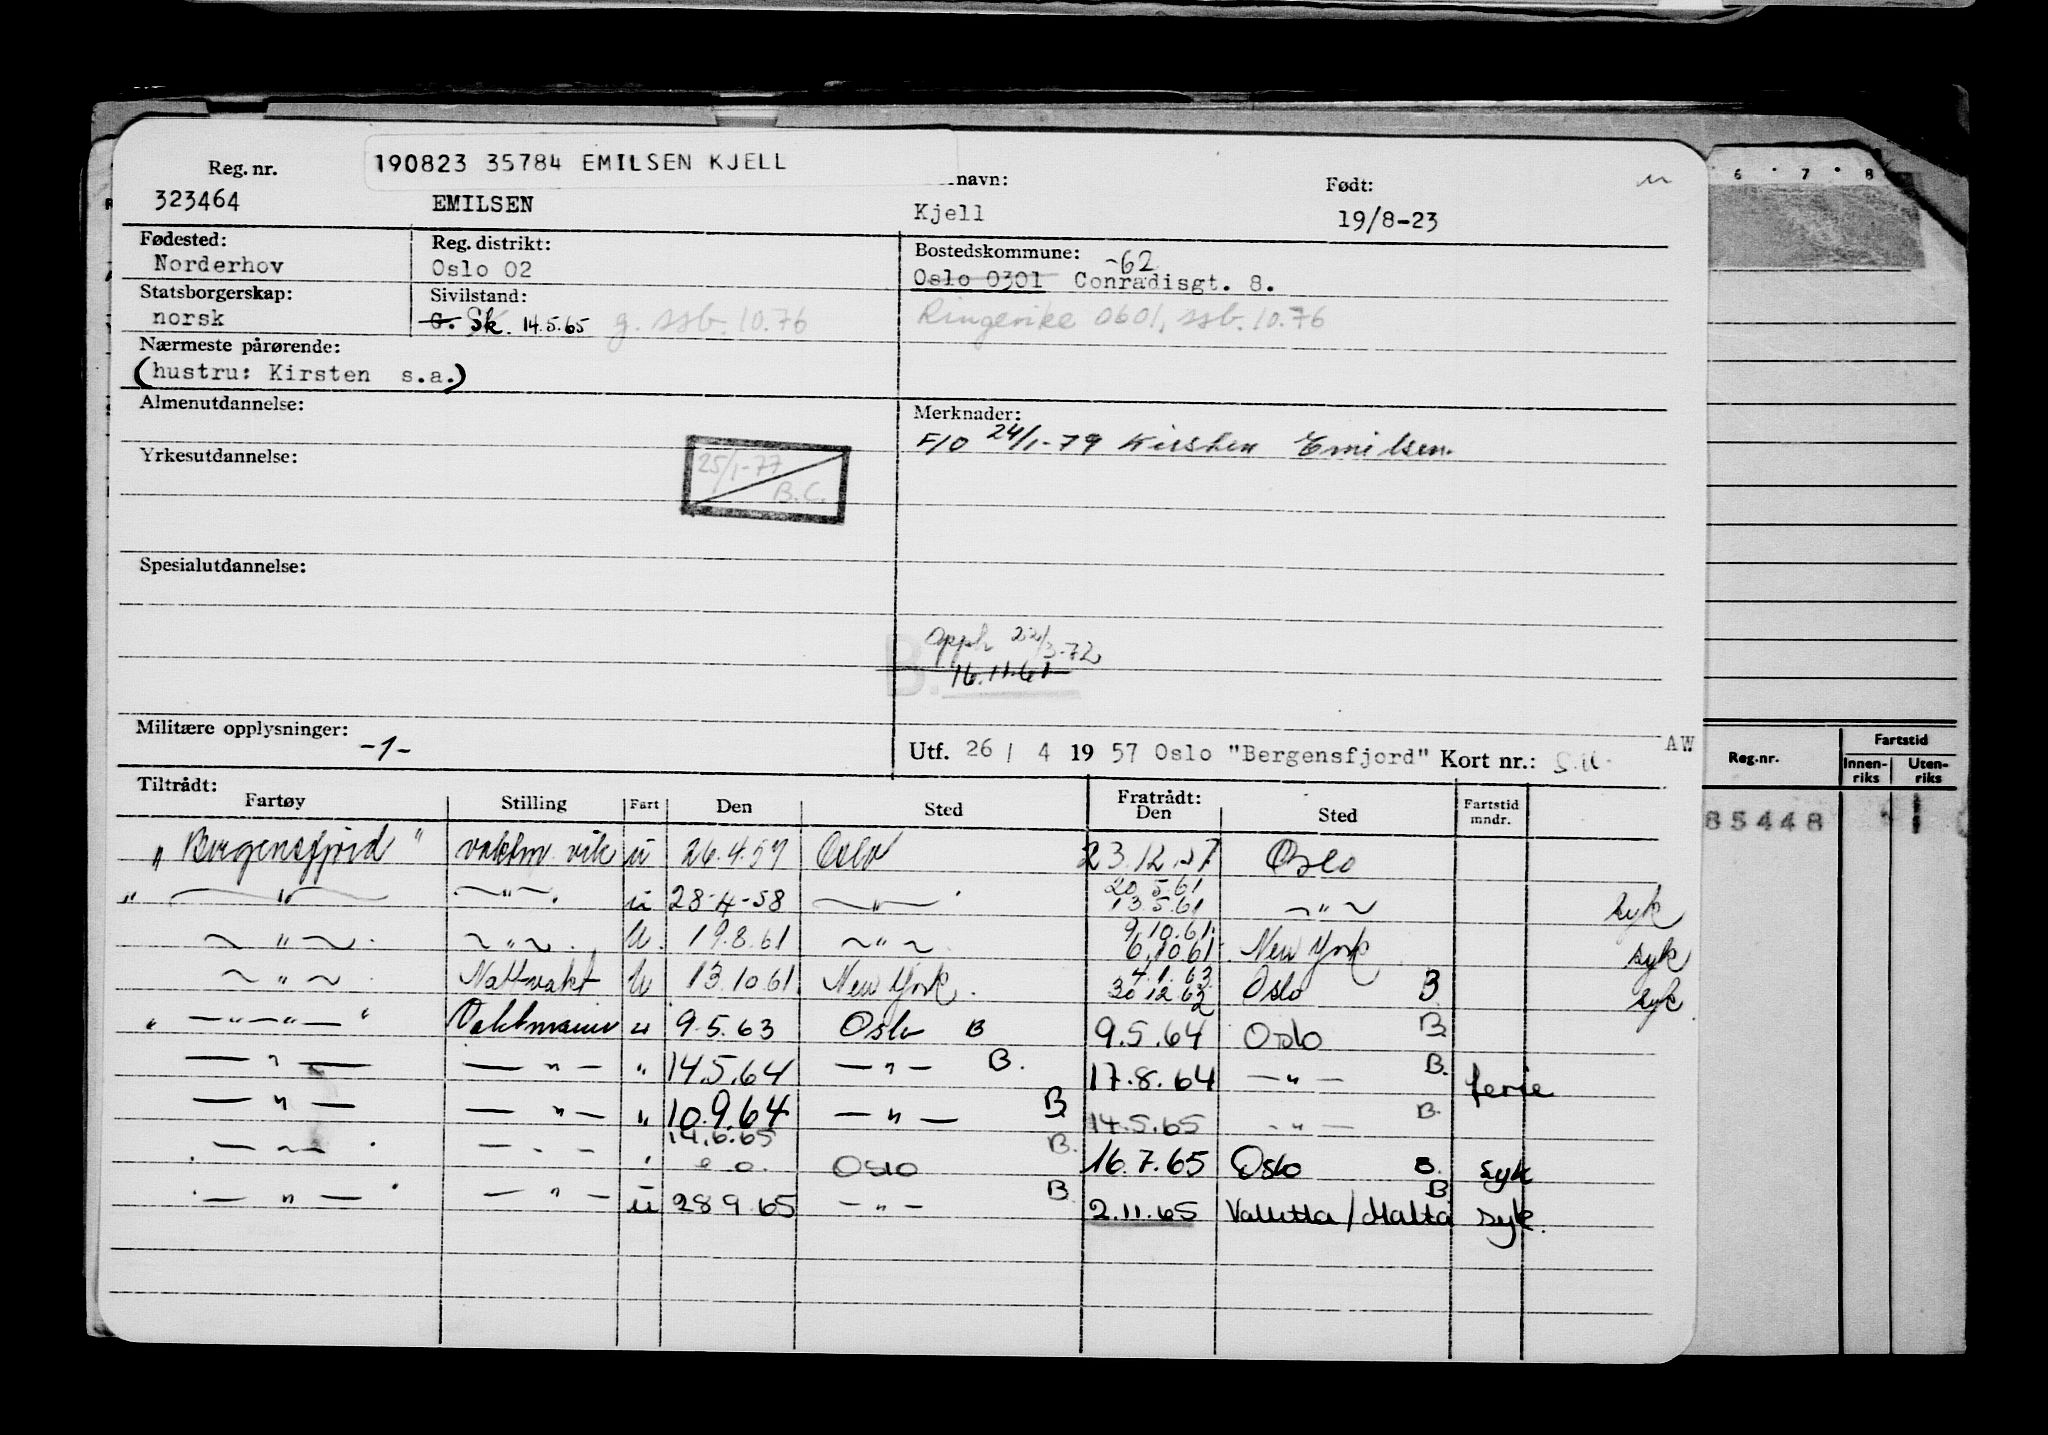 190823 35784 EMILSEN KJELL
Reg. nr. navn: Født:
323464 EMILSEN Kjell 19/8-23
Fødested: Reg. distrikt: Bostedskommune:
Norderhov Oslo 02 Oslo 0301 -62 Conradisgt. 8.
Statsborgerskap: Sivilstand:
norsk G. Sk. 14.5.65 g. ssb. 10.76 Ringerike 0601, ssb. 10.76
Nærmeste pårørende:
(hustru: Kirsten s.a.)
Almenutdannelse: Merknader:
F/O 24/1-79 Kirsten Emilsen.
Yrkesutdannelse: 25/1-77
B.C.
Spesialutdannelse:
Opph 22/3-72
B. 16.11.61
Militære opplysninger: -1-
Utf. 26 / 4 19 57 Oslo "Bergensfjord" Kort nr.:
AW
Tiltrådt: Fratrådt:
Fartøy Stilling Fart Den Sted Den Sted Fartstid mndr.
"Bergensfjord" vaktm vik u 26.4.57 Oslo 23.12.57 Oslo
" — " — — " — u 28-4-58 — " — 20.5.61
13.5.61 — " — syk
— " — — " — U 19.8.61 — " — 9.10.61
6.10.61 New York syk
— " — Nattvakt U 13.10.61 New York 4.1.63
30.12.62 Oslo B syk
" — " — " — " Vaktmann u 9.5.63 Oslo B 9.5.64 Oslo B
— " — — " — " 14.5.64 — " — B. 17.8.64 — " — B. ferie
— " — — " — " 10.9.64 — " — B 14.5.65 — " — B.
— " — — " — " 14.6.65 Oslo B. 16.7.65 Oslo B. syk
— " — — " — u 28 9.65 — " — B 2.11.65 Valletta / Malta B syk.
6 7 8
Reg.nr. Fartstid
Innen-riks Uten-riks
85448